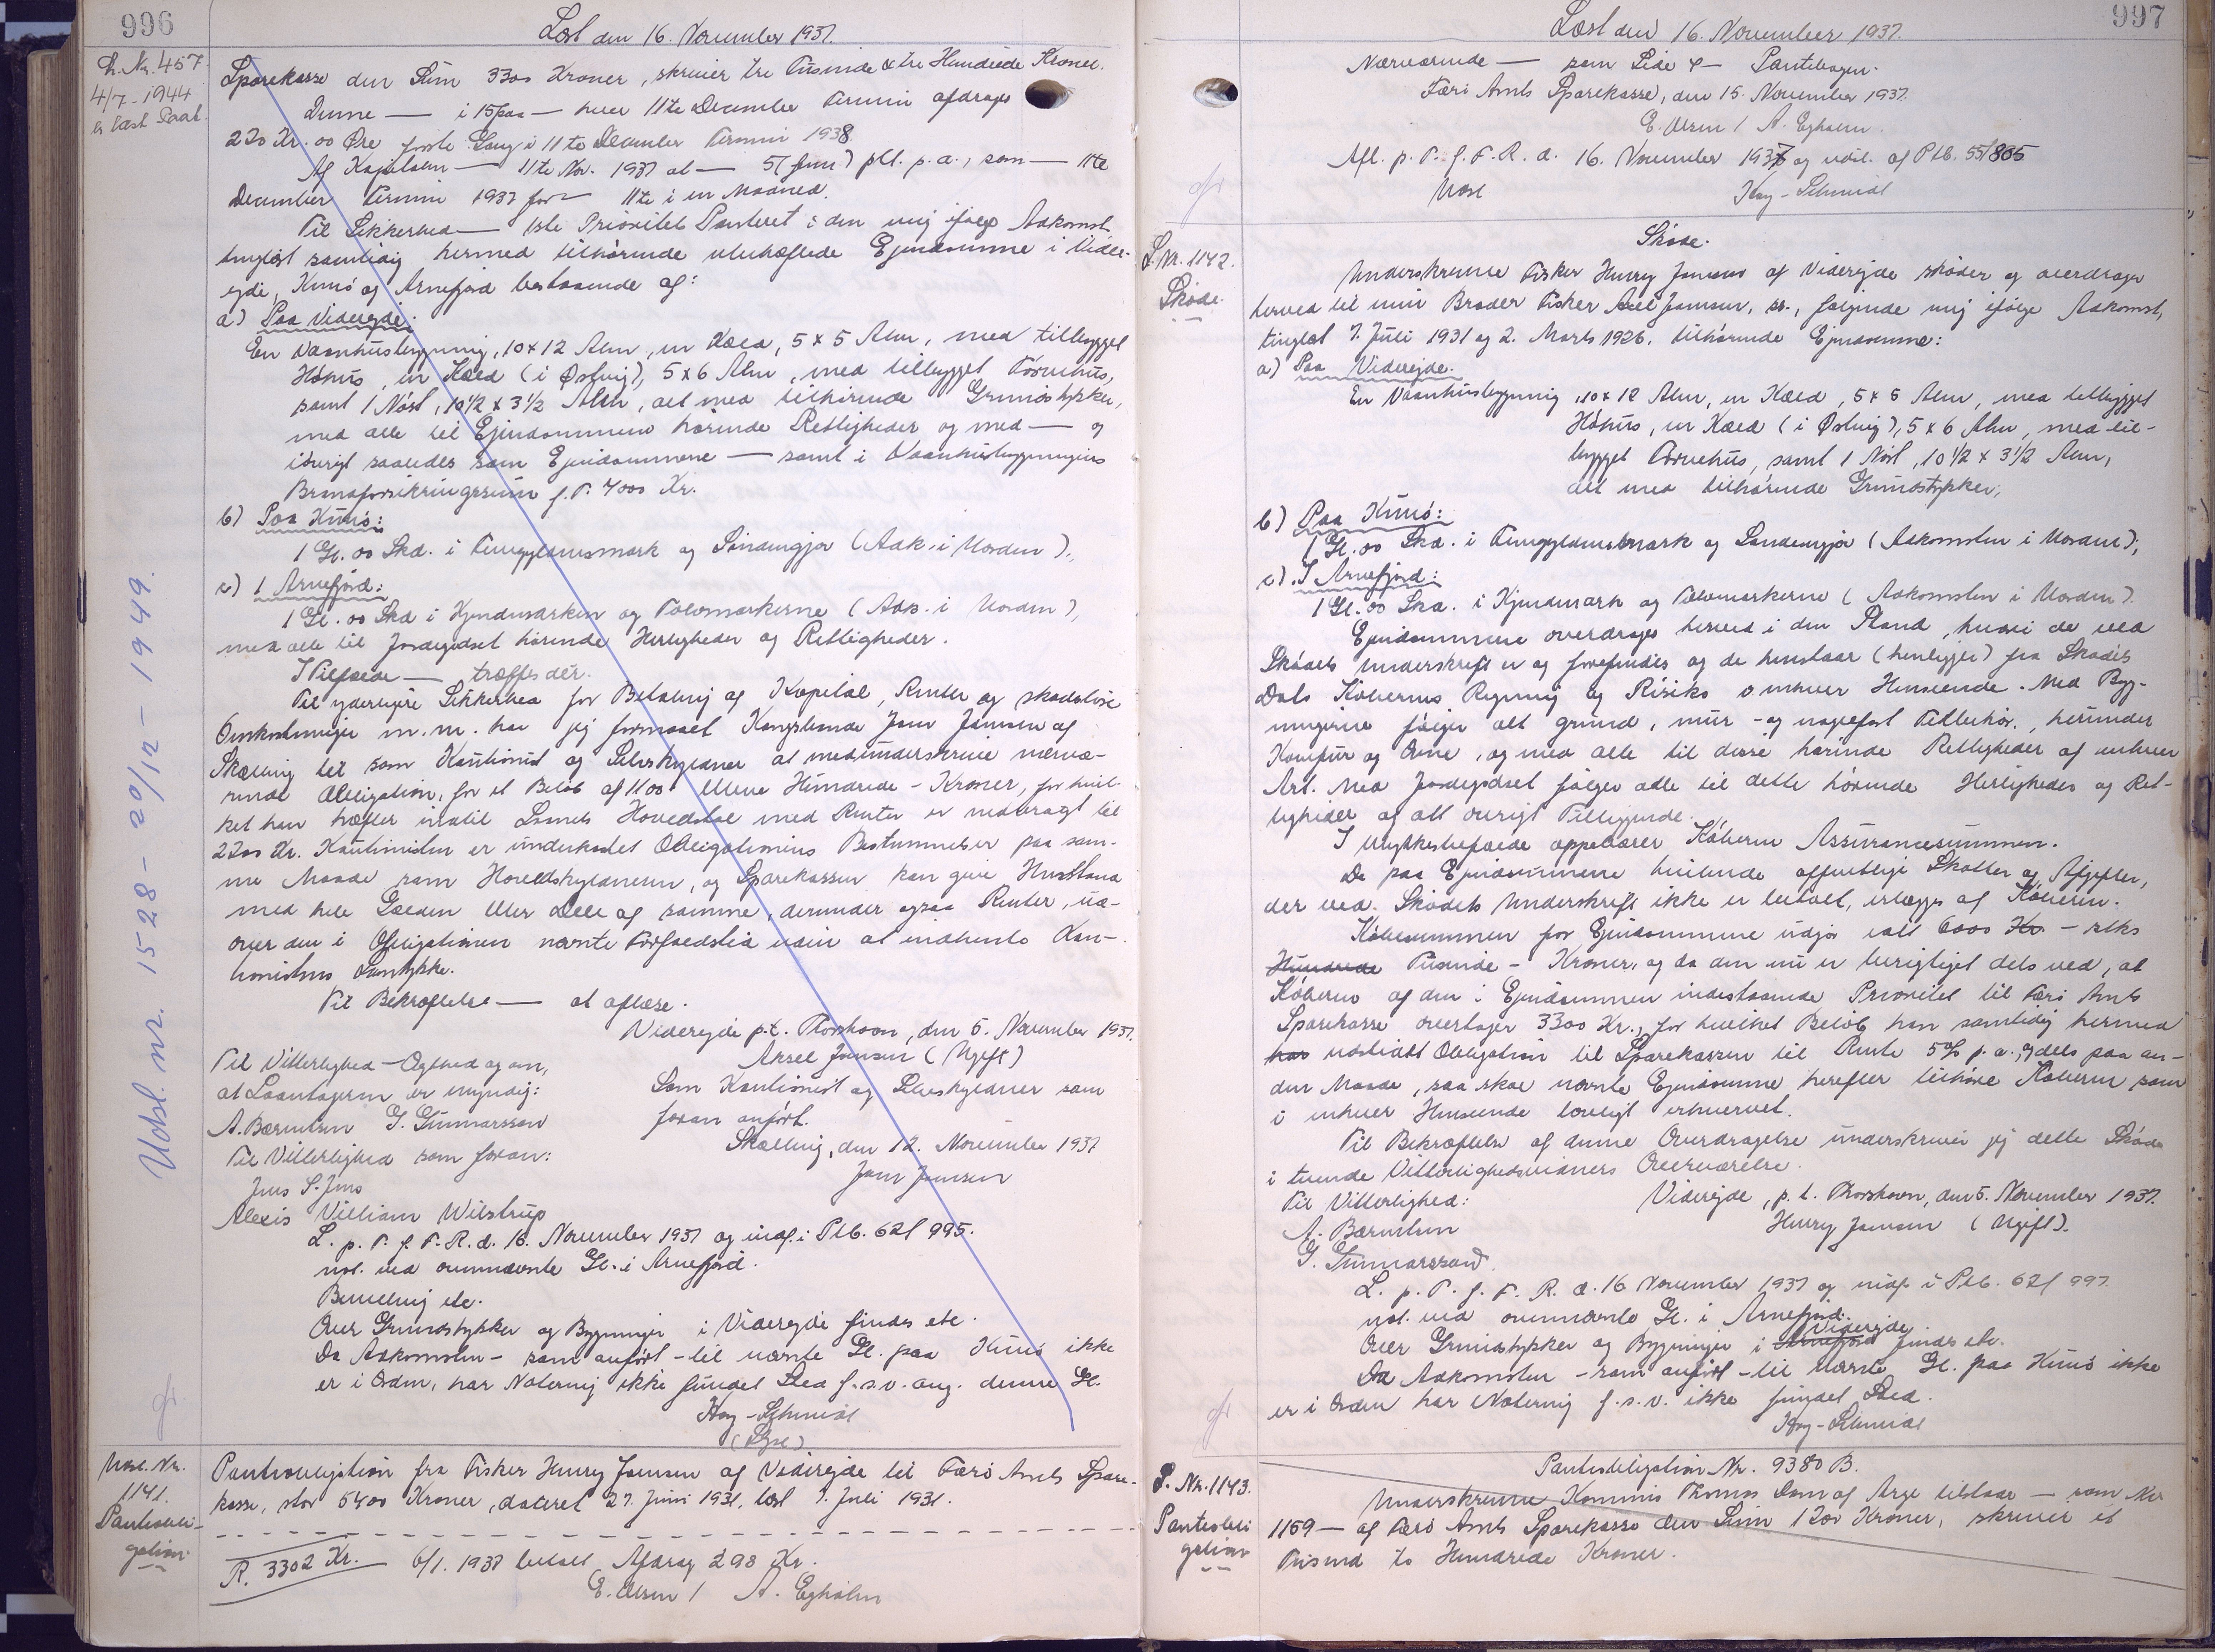 996
Læst den 16. November 1937.
L. Nr. 457
4/7 - 1944
er læst Saal.
Sparekasse den Sum 3300 Kroner, skriver tre Tusinde & tre Hundrede Kroner.
Denne — i 15 paa — hver 11te December Termin afdrages
220 Kr. 00 Øre første Gang i 11te December Termin 1938
Af Kapitalen — 11te Nov. 1937 at — 5 (fem) pCt. p. a., som — 11te
December Termin 1937 for — 11te i en Maaned.
Til Sikkerhed — 1ste Prioritets Panteret i den mig ifølge Adkomst
tinglæst samtidig hermed tilhørende ubehæftede Ejendomme i Vider-
ejde, Kunø og Arnefjord bestaaende af:
a) Paa Viderejde:
En Vaanhusbygning, 10 x 12 Alen, en Kæld, 5 x 5 Alen, med tilbygget
Høhus, en Kæld (i Østvig), 5 x 6 Alen, med tilbygget Tørvehus,
samt 1 Nøst, 10 1/2 x 3 1/2 Alen, alt med tilhørende Grundstykker,
med alle til Ejendommene hørende Rettigheder og med — og
iøvrigt saaledes som Ejendommene — samt i Vaanhusbygningens
Brandforsikringssum f. T. 4000 Kr.
b) Paa Kunø:
1 Gl. 00 Skd. i Tungyldensmark og Sandengjor (Adk. i Uorden).
c) I Arnefjord:
1 Gl. 00 Skd i Hjemmarken og Tolvmarkerne (Adk. i Uorden),
med alle til Jordegodset hørende Herligheder og Rettigheder.
I Tilfælde — træffes dér.
Til yderligere Sikkerhed for Betaling af Kapital, Renter og skadesløse
Omkostninger m. m. har jeg formaaet Kongsbonde Joen Joensen af
Skælling til som Kautionist og Selvskyldner at medunderskrive nærvæ-
rende Obligation, for et Beløb af 1100 elleve Hundrede - Kroner, for hvil-
ket han hæfter indtil Laanets Hovedstol med Renter er nedbragt til
2200 Kr. Kautionisten er underkastet Obligationens Bestemmelser paa sam-
me Maade som Hovedskyldneren, og Sparekassen kan give Henstand
med hele Gælden eller Dele af samme, derunder ogsaa Renter, ud-
over den i Obligationen nævnte Forfaldstid uden at indhente Kau-
tionistens Samtykke.
Til Bekræftelse — at aflæse.
Viderejde p.t. Thorshavn, den 5. November 1937.
Axsel Joensen (Ugift)
Til Vitterlighed - Ægthed og om,
at Laantageren er myndig:
A. Bærentsen G. Gunnarsson
Som Kautionist og Selvskyldner som
foran anført.
Skælling, den 12. November 1937
Joen Joensen
Til Vitterlighed som foran:
Jens S. Jens
Alexis Villiam Wilstrup
L. p. T. f. F. R. d. 16. November 1937 og indf. i Ptb. 62f 995.
not. ved ovennævnte Gl. i Arnefjord.
Bemelding etc.
Over Grundstykker og Bygninger i Viderejde findes etc.
Da Adkomsten - som anført - til nævnte Gl. paa Kunø ikke
er i Orden, har Notering ikke fundet Sted f.s.v. ang. denne Gl.
Høg-Schmidt
Udsl. nr. 1528 - 20/12 - 1949.
Udsl. Nr.
1141.
Pantobli-
gation
Pantobligation fra Fisker Henry Joensen af Viderejde til Færø Amts Spare-
kasse, stor 5400 Kroner, dateret 27. Juni 1931, læst 7. Juli 1931.
R. 3302 Kr. 6/1. 1937 betalt Afdrag 298 Kr.
E. Olsen / A. Egholm
997
Læst den 16. November 1937.
Nærværende — som Side & — Pantebogen.
Færø Amts Sparekasse, den 15. November 1937.
E. Olsen / A. Egholm.
Afl. p. T. f. F. R. d. 16. November 1937 og udsl. af Ptb. 55f 805
Udsl Høg-Schmidt
L. Nr. 1142.
Skøde.
Skøde.
Underskrevne Fisker Henry Joensen af Viderejde skøder og overdrager
herved til min Broder Fisker Axel Joensen, sst., følgende mig ifølge Adkomst,
tinglæst 7. Juli 1931 og 2. Marts 1926, tilhørende Ejendomme:
a) Paa Viderejde.
En Vaanhusbygning, 10 x 12 Alen, en Kæld, 5 x 5 Alen, med tilbygget
Høhus, en Kæld (i Østvig), 5 x 6 Alen, med til-
bygget Tørvehus, samt 1 Nøst, 10 1/2 x 3 1/2 Alen,
alt med tilhørende Grundstykker,
b) Paa Kunø:
1 Gl. 00 Skd. i Tungyldensmark og Sandengjor (Adkomsten i Uorden);
c). I Arnefjord:
1 Gl. 00 Skd. i Hjemmark og Tolvmarkerne (Adkomsten i Uorden).
Ejendommene overdrages herved i den Stand, hvori de ved
Skødets Underskrift er og forefindes og de henstaar (henligger) fra Skødets
Dato Køberens Regning og Risiko i enhver Henseende. Med Byg-
ningerne følger alt grund, mur - og nagelfast Tilbehør, herunder
Komfur og Ovne, og med alle til disse hørende Rettigheder af enhver
Art. Med Jordegodset følger alle til dette hørende Herligheder og Ret-
tigheder og alt øvrigt Tilliggende.
I Ulykkestilfælde oppebærer Køberen Assurancesummen.
De paa Ejendommene hvilende offentlige Skatter og Afgifter,
der ved Skødets Underskrift ikke er betalt, erlægges af Køberen.
Købesummen for Ejendommene udgør ialt 6000 Kr. - seks
Hundrede Tusinde - Kroner, og da den nu er berigtiget dels ved, at
Køberen af den i Ejendommen indestaaende Prioritet til Færø Amts
Sparekasse overtager 3300 Kr., for hvilket Beløb han samtidig hermed
har udstedt Obligation til Sparekassen til Rente 5% p.a., og dels paa an-
den Maade, saa skal nævnte Ejendomme herefter tilhøre Køberen som
i enhver Henseende lovligt erhvervet.
Til Bekræftelse af denne Overdragelse underskriver jeg dette Skøde
i tvende Vitterlighedsvidners Overværelse.
Viderejde, p. t. Thorshavn, den 5. November 1937.
Henry Joensen (Ugift).
Til Vitterlighed:
A. Bærentsen
G. Gunnarsson
L. p. T. f. F. R. d. 16 November 1937 og indf. i Ptb. 62f 997.
not. ved ovennævnte Gl. i Arnefjord.
Over Grundstykker og Bygninger i Arnefjord Viderejde findes etc.
Da Adkomsten - som anført - til nævnte Gl. paa Kunø ikke
er i Orden har Notering f.s.v. ikke fundet Sted.
Høg-Schmidt
P. Nr. 1143.
Pantobli
gation
Pantobligation Nr. 9380 B.
Underskrevne Kommis Thomas Dam af Arge tilstaar — som Nr
1159 — af Færø Amts Sparekasse den Sum 1200 Kroner, skriver et
Tusind to Hundrede Kroner.